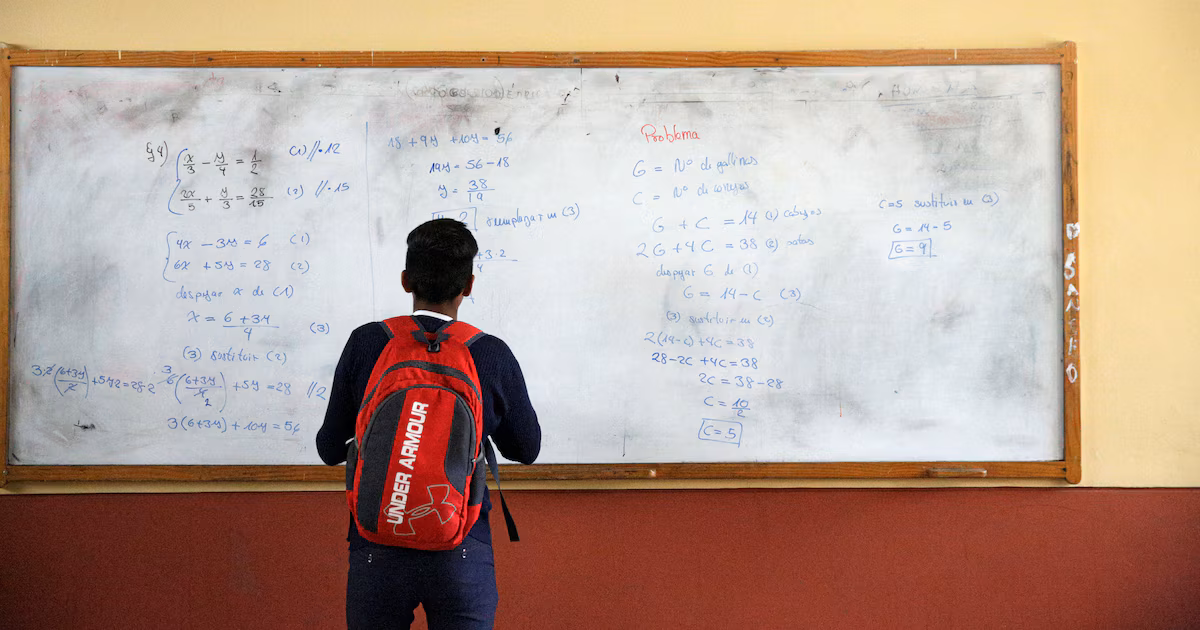 x/3 - y/4 = 1/2 (1) //·12
2x/5 + y/3 = 28/15 (2) //·15
4x - 3y = 6 (1)
6x + 5y = 28 (2)
despejar x de (1)
x = 6+3y/4 (3)
(3) sustituir (2)
6(6+3y/4) + 5y = 28 //2
3(6+3y) + 10y = 56
18 + 9y + 10y = 56
19y = 56 - 18
y = 38/19
reemplazar en (3)
+3·2
4
Problema
G = Nº de gallinas
C = Nº de
G + C = 14 (1) cabezas
2G + 4C = 38 (2) patas
despejar G de (1)
G = 14 - C (3)
(3) sustituir en (2)
2(14-C) + 4C = 38
28 - 2C + 4C = 38
2C = 38 - 28
C = 10/2
C = 5
C=5 sustituir en (3)
G = 14 - 5
G = 9
UNDER ARMOUR